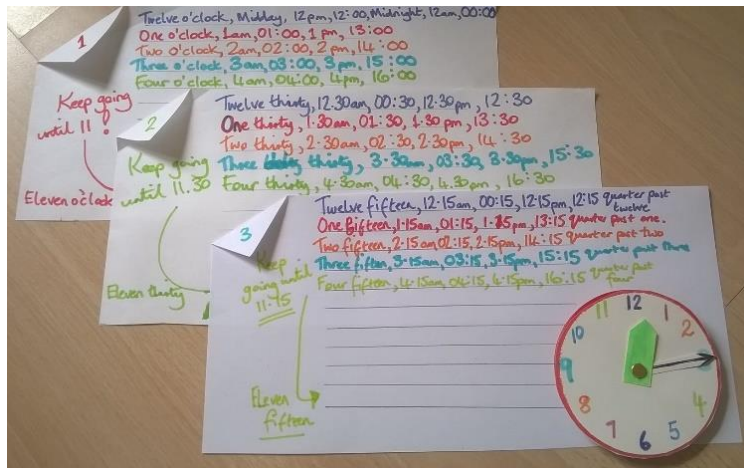 Twelve o'clock, Midday, 12pm, 12:00, Midnight, 12am, 00:00
One o'clock, 1am, 01:00, 1pm, 13:00
Two o'clock, 2am, 02:00, 2pm, 14:00
Three o'clock, 3am, 03:00, 3pm, 15:00
Four o'clock, 4am, 04:00, 4pm, 16:00
1
Keep going
until 11!
Eleven o'clock
Twelve thirty, 12.30am, 00:30, 12.30pm, 12:30
One thirty, 1.30am, 01:30, 1.30pm, 13:30
Two thirty, 2.30am, 02:30, 2.30pm, 14:30
Three thirty, 3.30am, 03:30, 3.30pm, 15:30
Four thirty, 4.30am, 04:30, 4.30pm, 16:30
2
Keep going
until 11.30
Eleven thirty
Twelve fifteen, 12.15am, 00:15, 12:15pm, 12:15 quarter past
twelve
One fifteen, 1.15am, 01:15, 1.15pm, 13:15 quarter past one.
Two fifteen, 2.15am, 02:15, 2.15pm, 14:15 quarter past two
Three fiften, 3.15am, 03:15, 3.15pm, 15:15 quarter past three
Four fifteen, 4.15am, 04:15, 4.15pm, 16:15 quarter past
four
3
Keep
going until
11.15
Eleven
fifteen
11 12 1
10 2
9
8 4
7 6 5